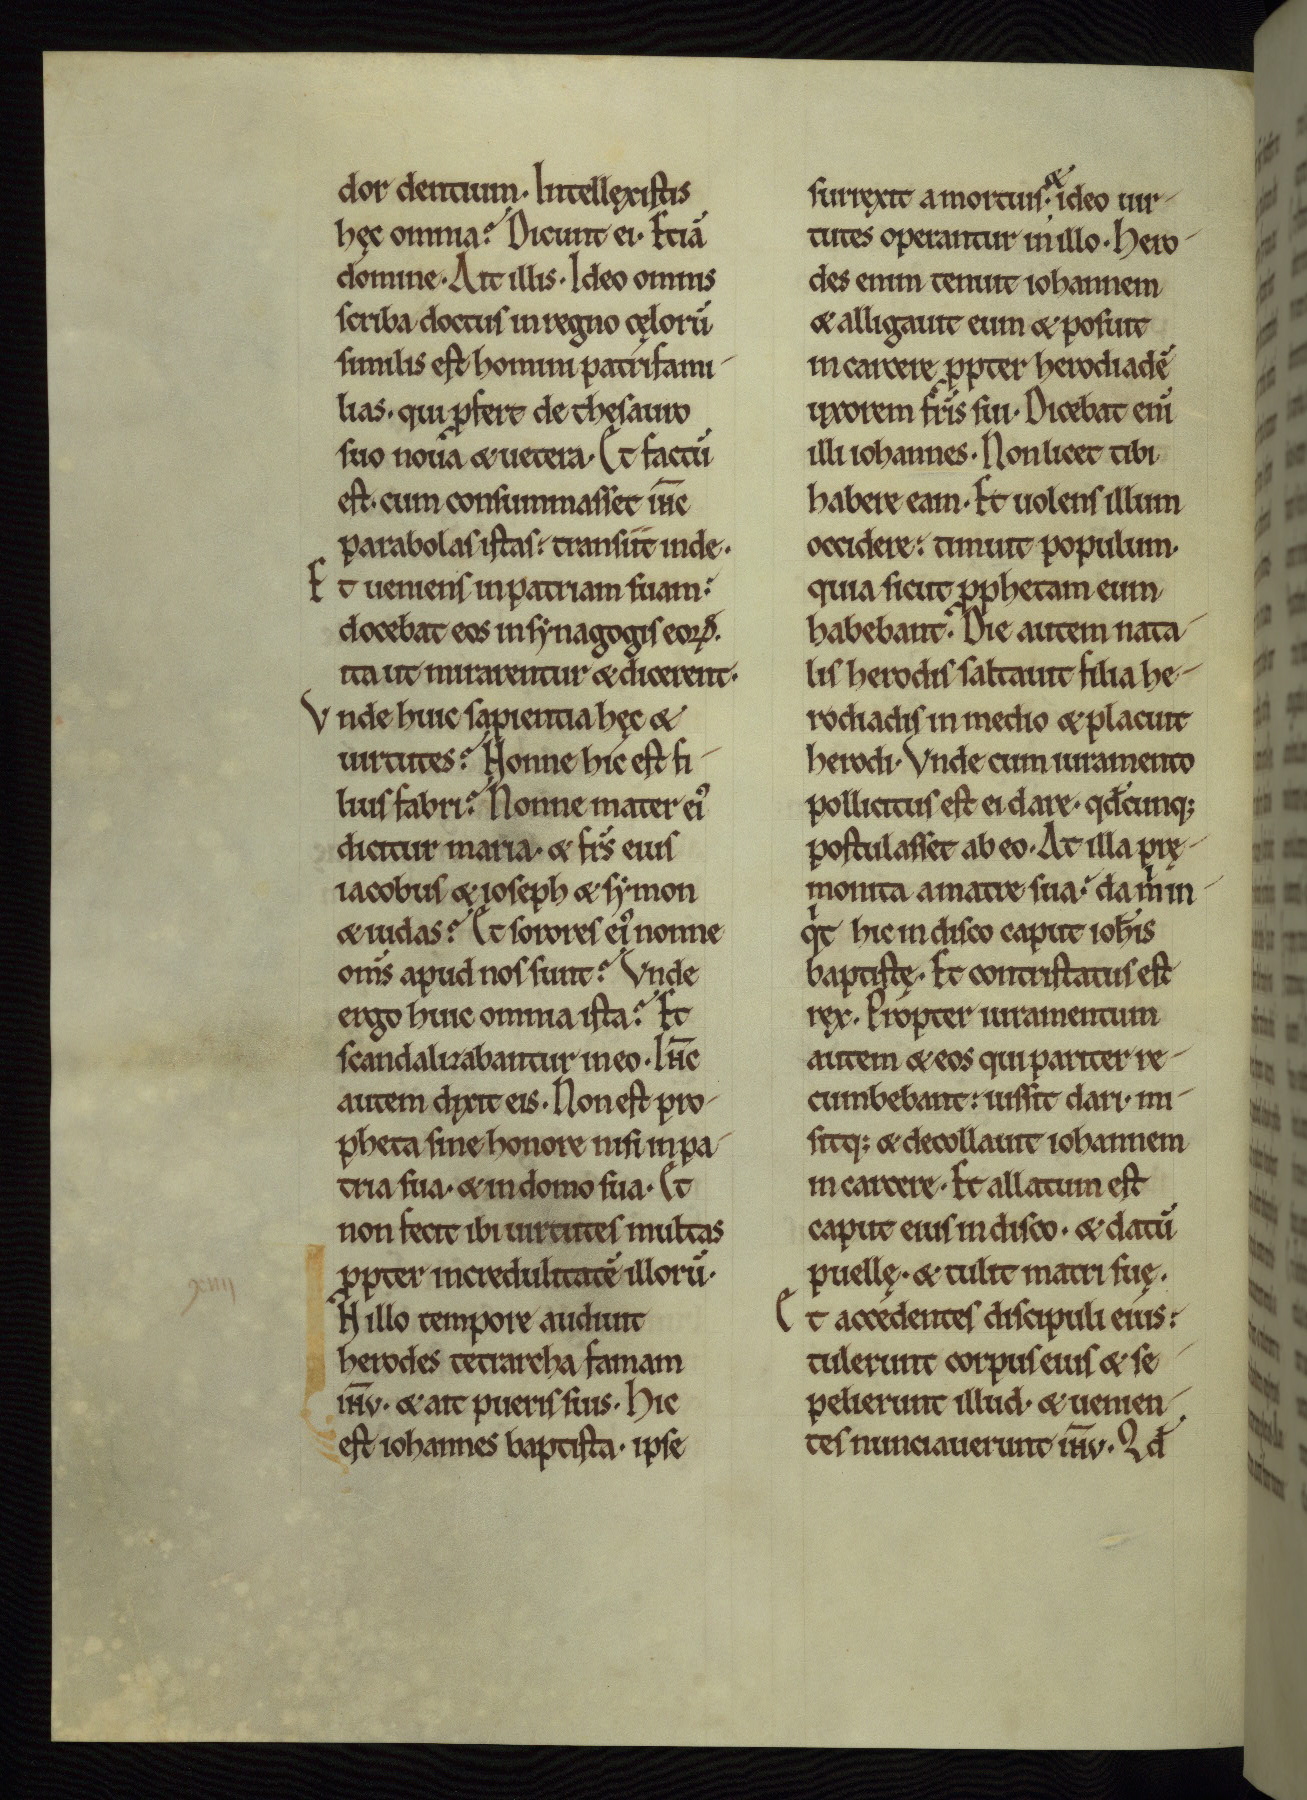 dor dentium. Intellexistis
hęc omnia? Dicunt ei. Etiā
domine. Ait illis. Ideo omnis
scriba doctus in regno cęlorū
similis est homini patrifami-
lias. qui ꝓfert de thesauro
suo noua & uetera. Et factū
est. cum consummasset ih̄c
parabolas istas: transiit inde.
Et ueniens in patriam suam:
docebat eos in synagogis eoꝝ.
ita ut mirarentur & dicerent.
Vnde huic sapientia hęc &
uirtutes? Nonne hic est fi-
lius fabri? Nonne mater ei᾽
dicitur maria. & fr̄s eius
iacobus & ioseph & symon
& iudas? Et sorores ei᾽ nonne
om̄s apud nos sunt? Vnde
ergo huic omnia ista? Et
scandalizabantur in eo. Ih̄c
autem dixit eis. Non est pro-
pheta sine honore nisi in pa-
tria sua. & in domo sua. Et
non fecit ibi uirtutes multas
ꝓpter incredulitatē illorū.
IN illo tempore audiuit
herodes tetrarcha famam
ih̄v. & ait pueris suis. Hic
est iohannes baptista. ipse
xiiii
surrexit a mortuis. & ideo uir-
tutes operantur in illo. Hero-
des enim tenuit iohannem
& alligauit eum & posuit
in carcere ꝓpter herodiadē
uxorem fr̄is sui. Dicebat eni̅
illi iohannes. Non licet tibi
habere eam. Et uolens illum
occidere: timuit populum.
quia sicut ꝓphetam eum
habebant. Die autem nata-
lis herodis saltauit filia he-
rodiadis in medio & placuit
herodi. Vnde cum iuramento
pollicitus est ei dare. qđcunq;
postulasset ab eo. At illa prę-
monita a matre sua: da m in-
qt hic in disco caput ioh̄is
baptistę. Et contristatus est
rex. Propter iuramentum
autem & eos qui pariter re-
cumbebant: iussit dari. mi-
sitq; & decollauit iohannem
in carcere. Et allatum est
caput eius in disco. & datū
puellę. & tulit matri suę.
Et accedentes discipuli eius:
tulerunt corpus eius & se-
pelierunt illud. & uenien-
tes nunciauerunt ih̄v. Qđ